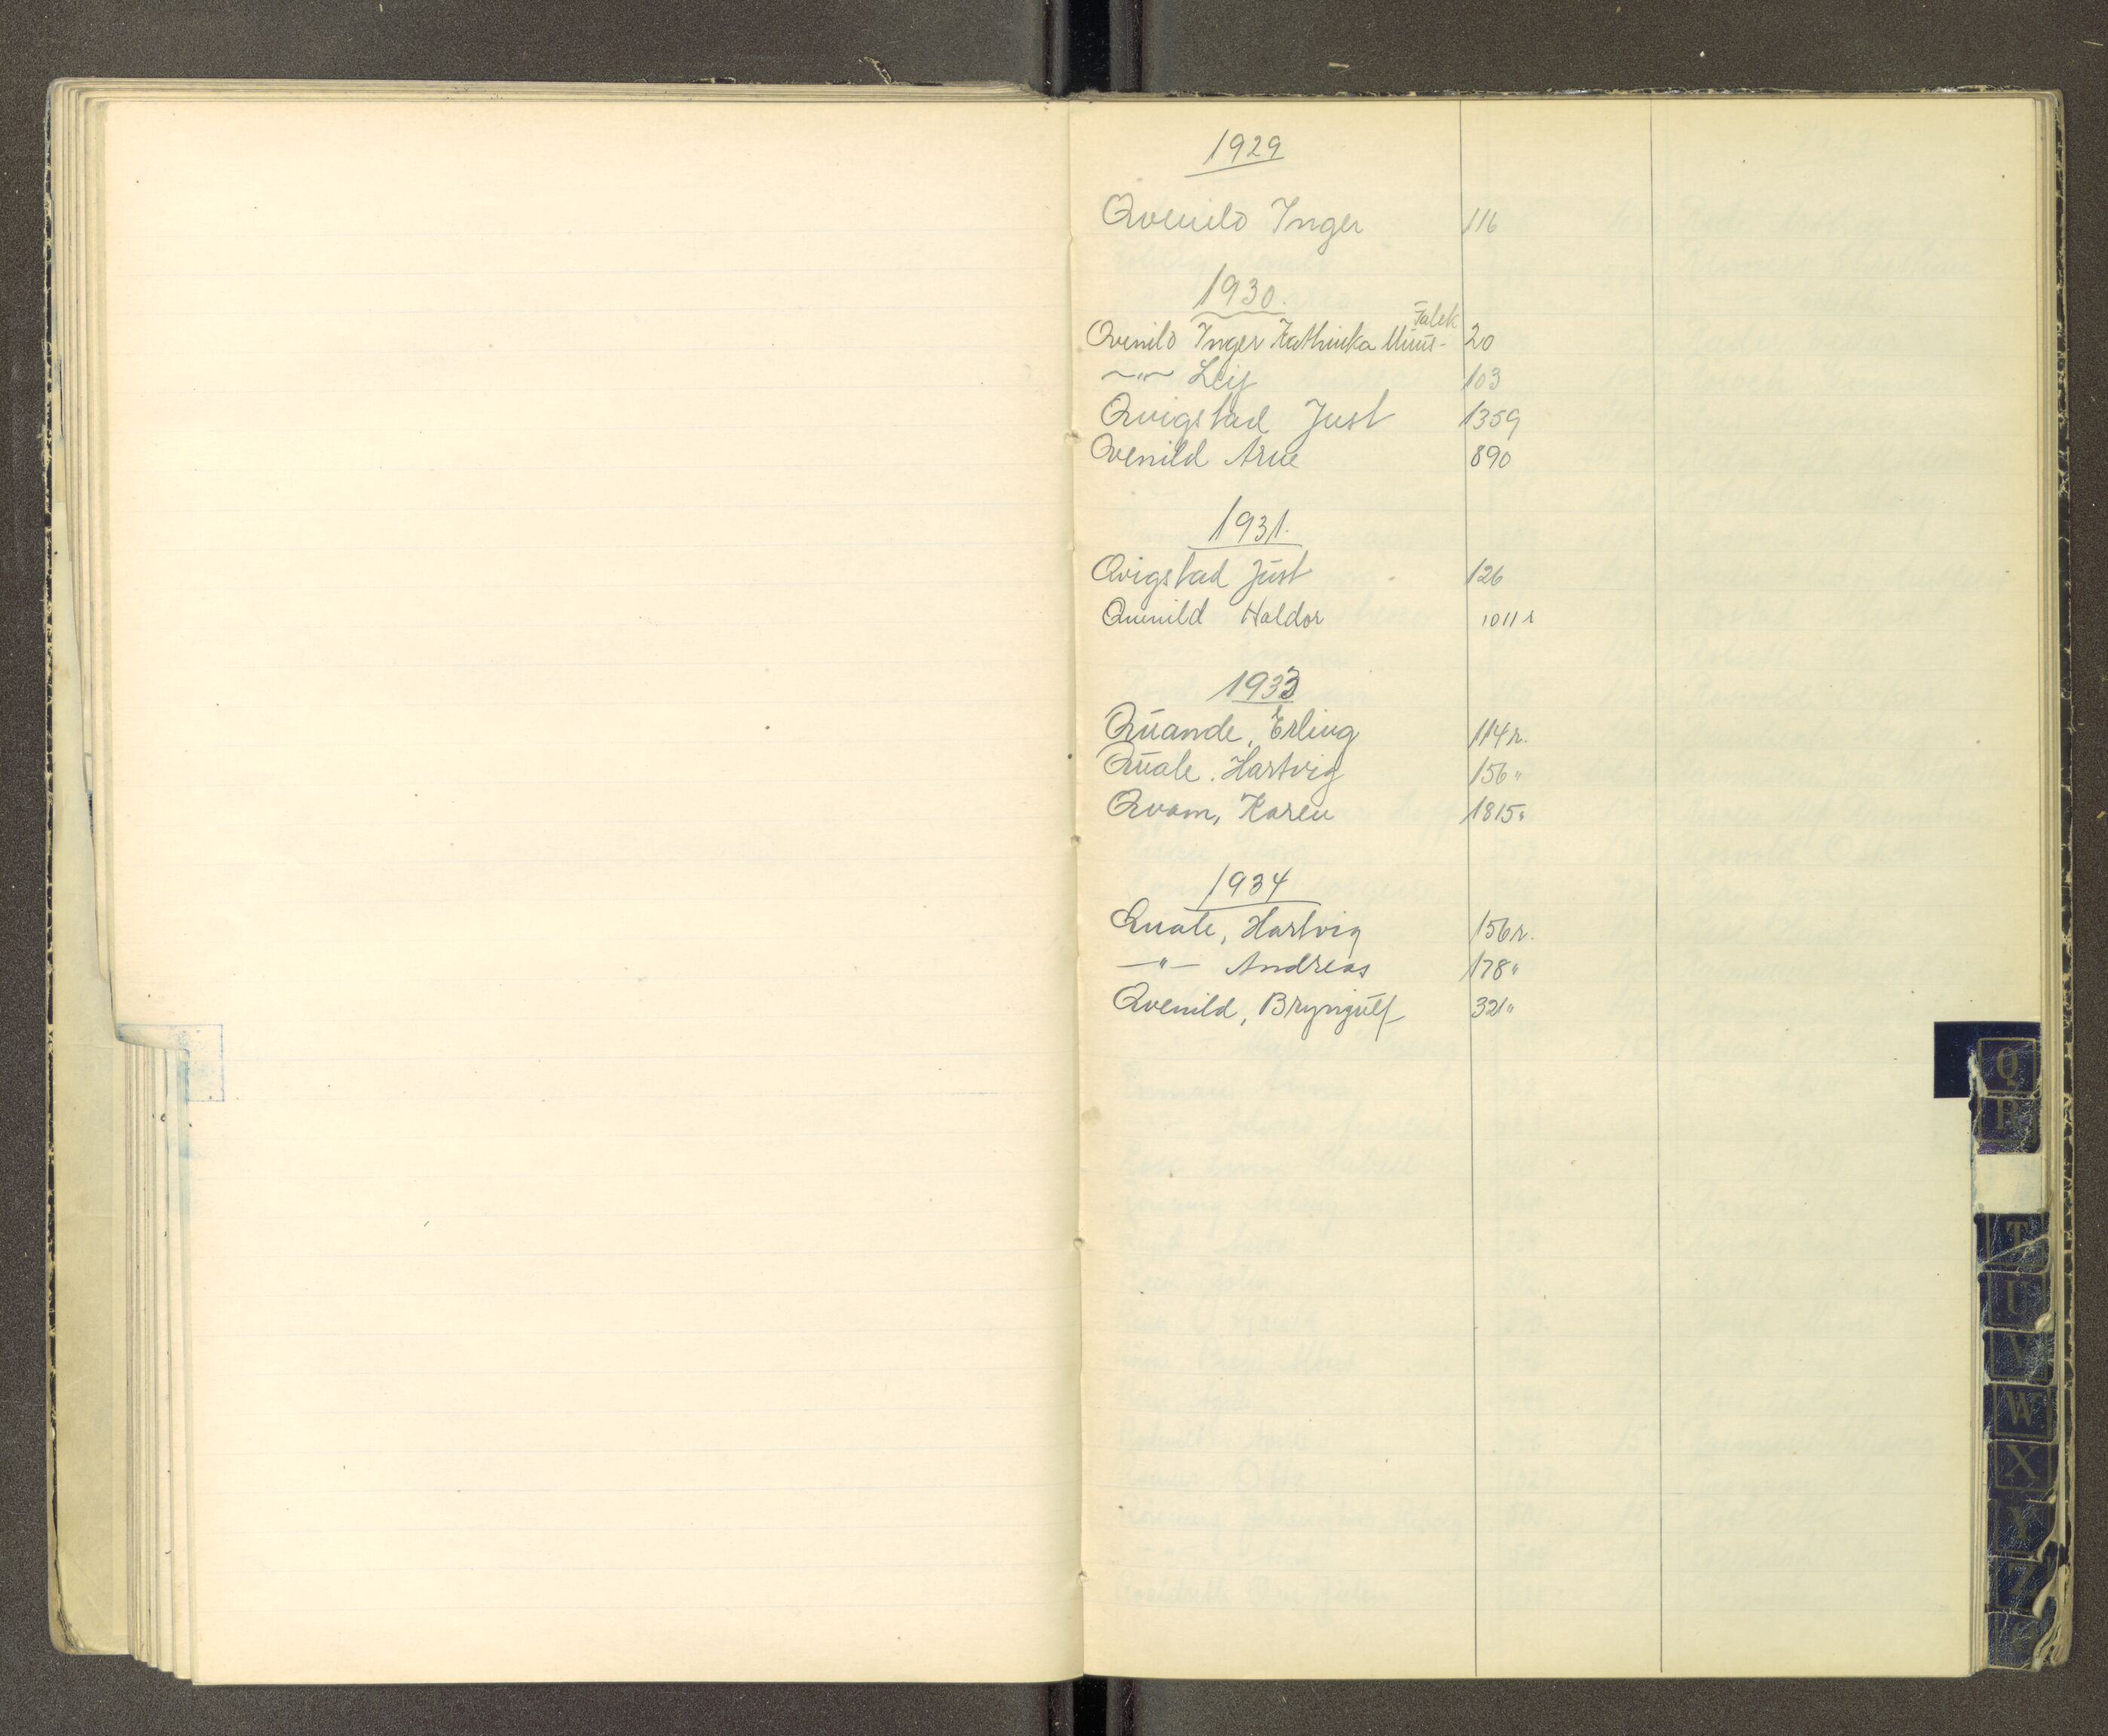 1929
Qvenild Inger 116
1930.
Falck
Qvenild Inger Kathinka Muus- 20
-"- Leif 103
Qvigstad Just 1359
Qvenild Arne 890
1931.
Qvigstad Just 126
Quenild Haldor 1011 r
1933
Quande, Erling 114 r.
Quale. Hartvig 156 "
Qvam, Karen 1815 "
1934
Quale, Hartvig 156 r.
-"- Andreas 178 "
Qvenild, Bryngulf 321 "
Q
P
T
U
V
W
X
Y
Z